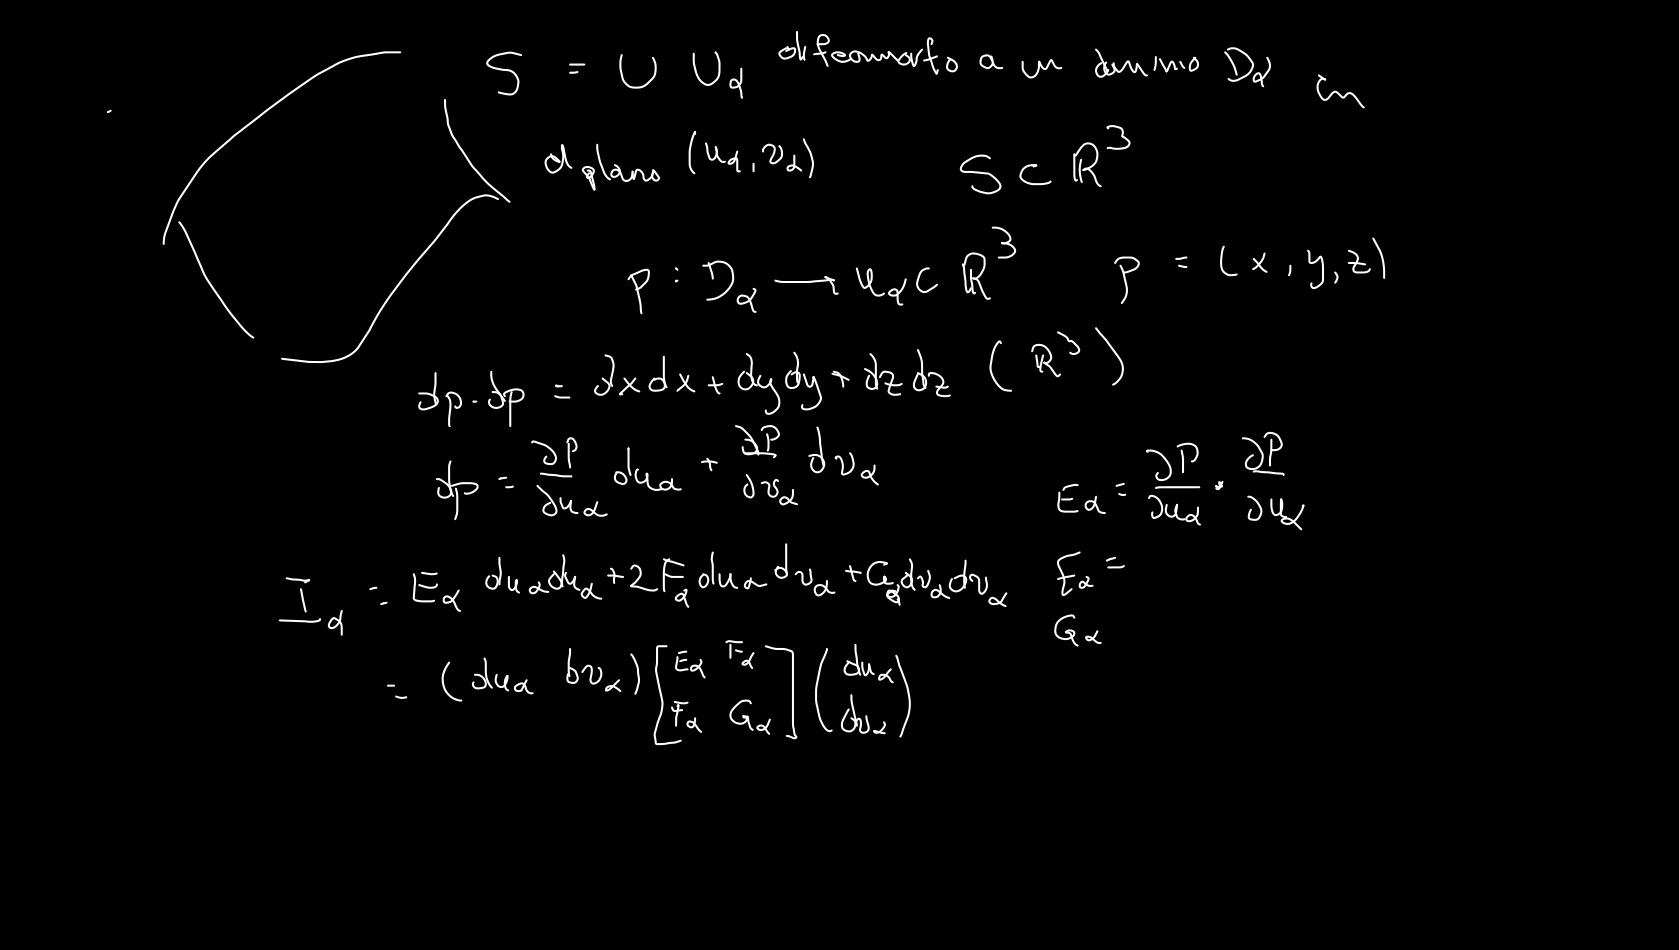 S = ∪ U_α difeomorfo a un dominio D_α in
el plano (u_α, v_α) S ⊂ ℝ³
p : D_α → U_α ⊂ ℝ³ p = (x, y, z)
dp · dp = dx dx + dy dy + dz dz (ℝ³)
dp = ∂P/∂u_α du_α + ∂P/∂v_α dv_α E_α = ∂P/∂u_α · ∂P/∂u_α
I_α = E_α du_α du_α + 2F_α du_α dv_α + G_α dv_α dv_α F_α =
G_α
= (du_α dv_α) [E_α F_α; F_α G_α] (du_α; dv_α)